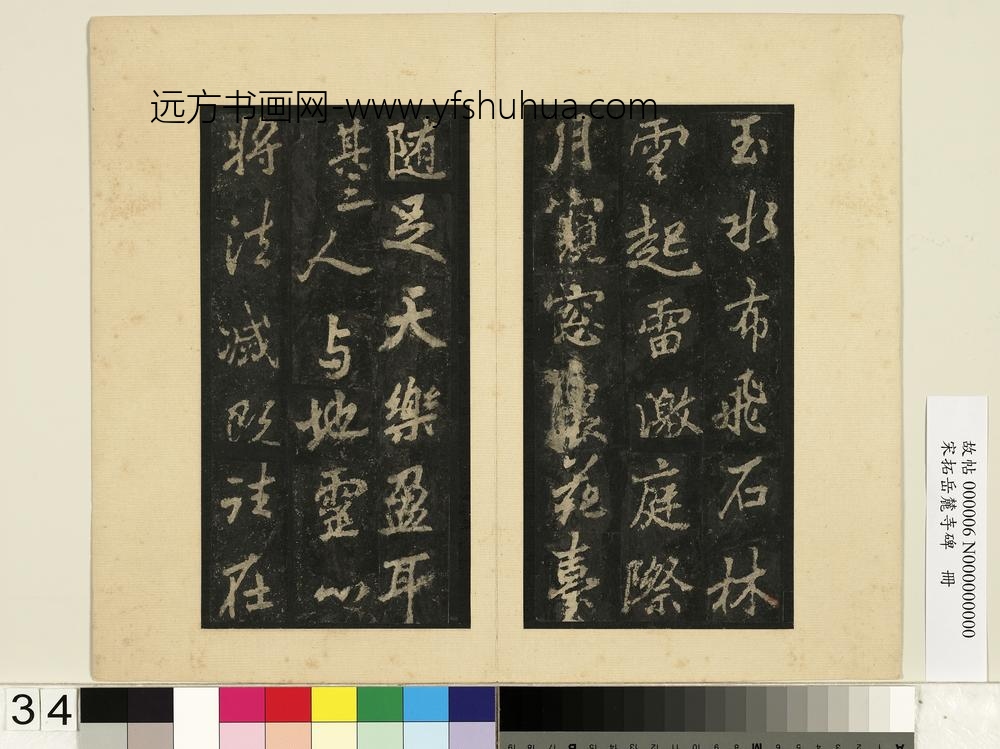 远方书画网-www.yfshuhua.com
玉水布飛石林
雲起雷激庭際
月窺窓裏花臺
随足天樂盈耳
其三人与地靈心
將法滅既往在
故帖 000006 N000000000
宋拓岳麓寺碑 冊
34